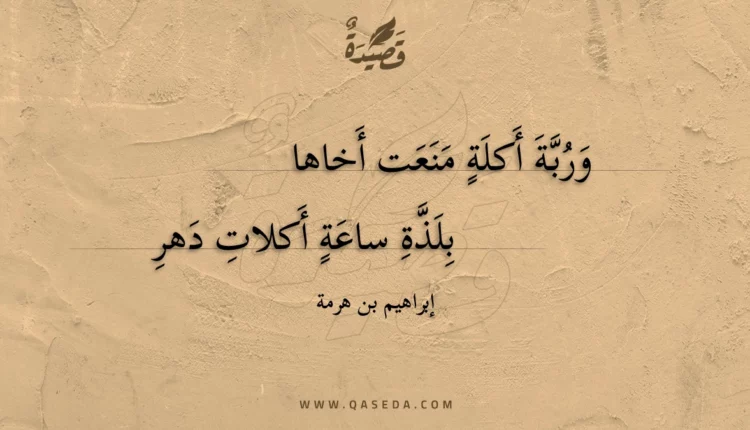 قَصِيدَةٌ
وَرُبَّةَ أَكلَةٍ مَنَعَت أَخاها
بِلَذَّةِ ساعَةٍ أَكلاتِ دَهرِ
إبراهيم بن هرمة
WWW.QASEDA.COM